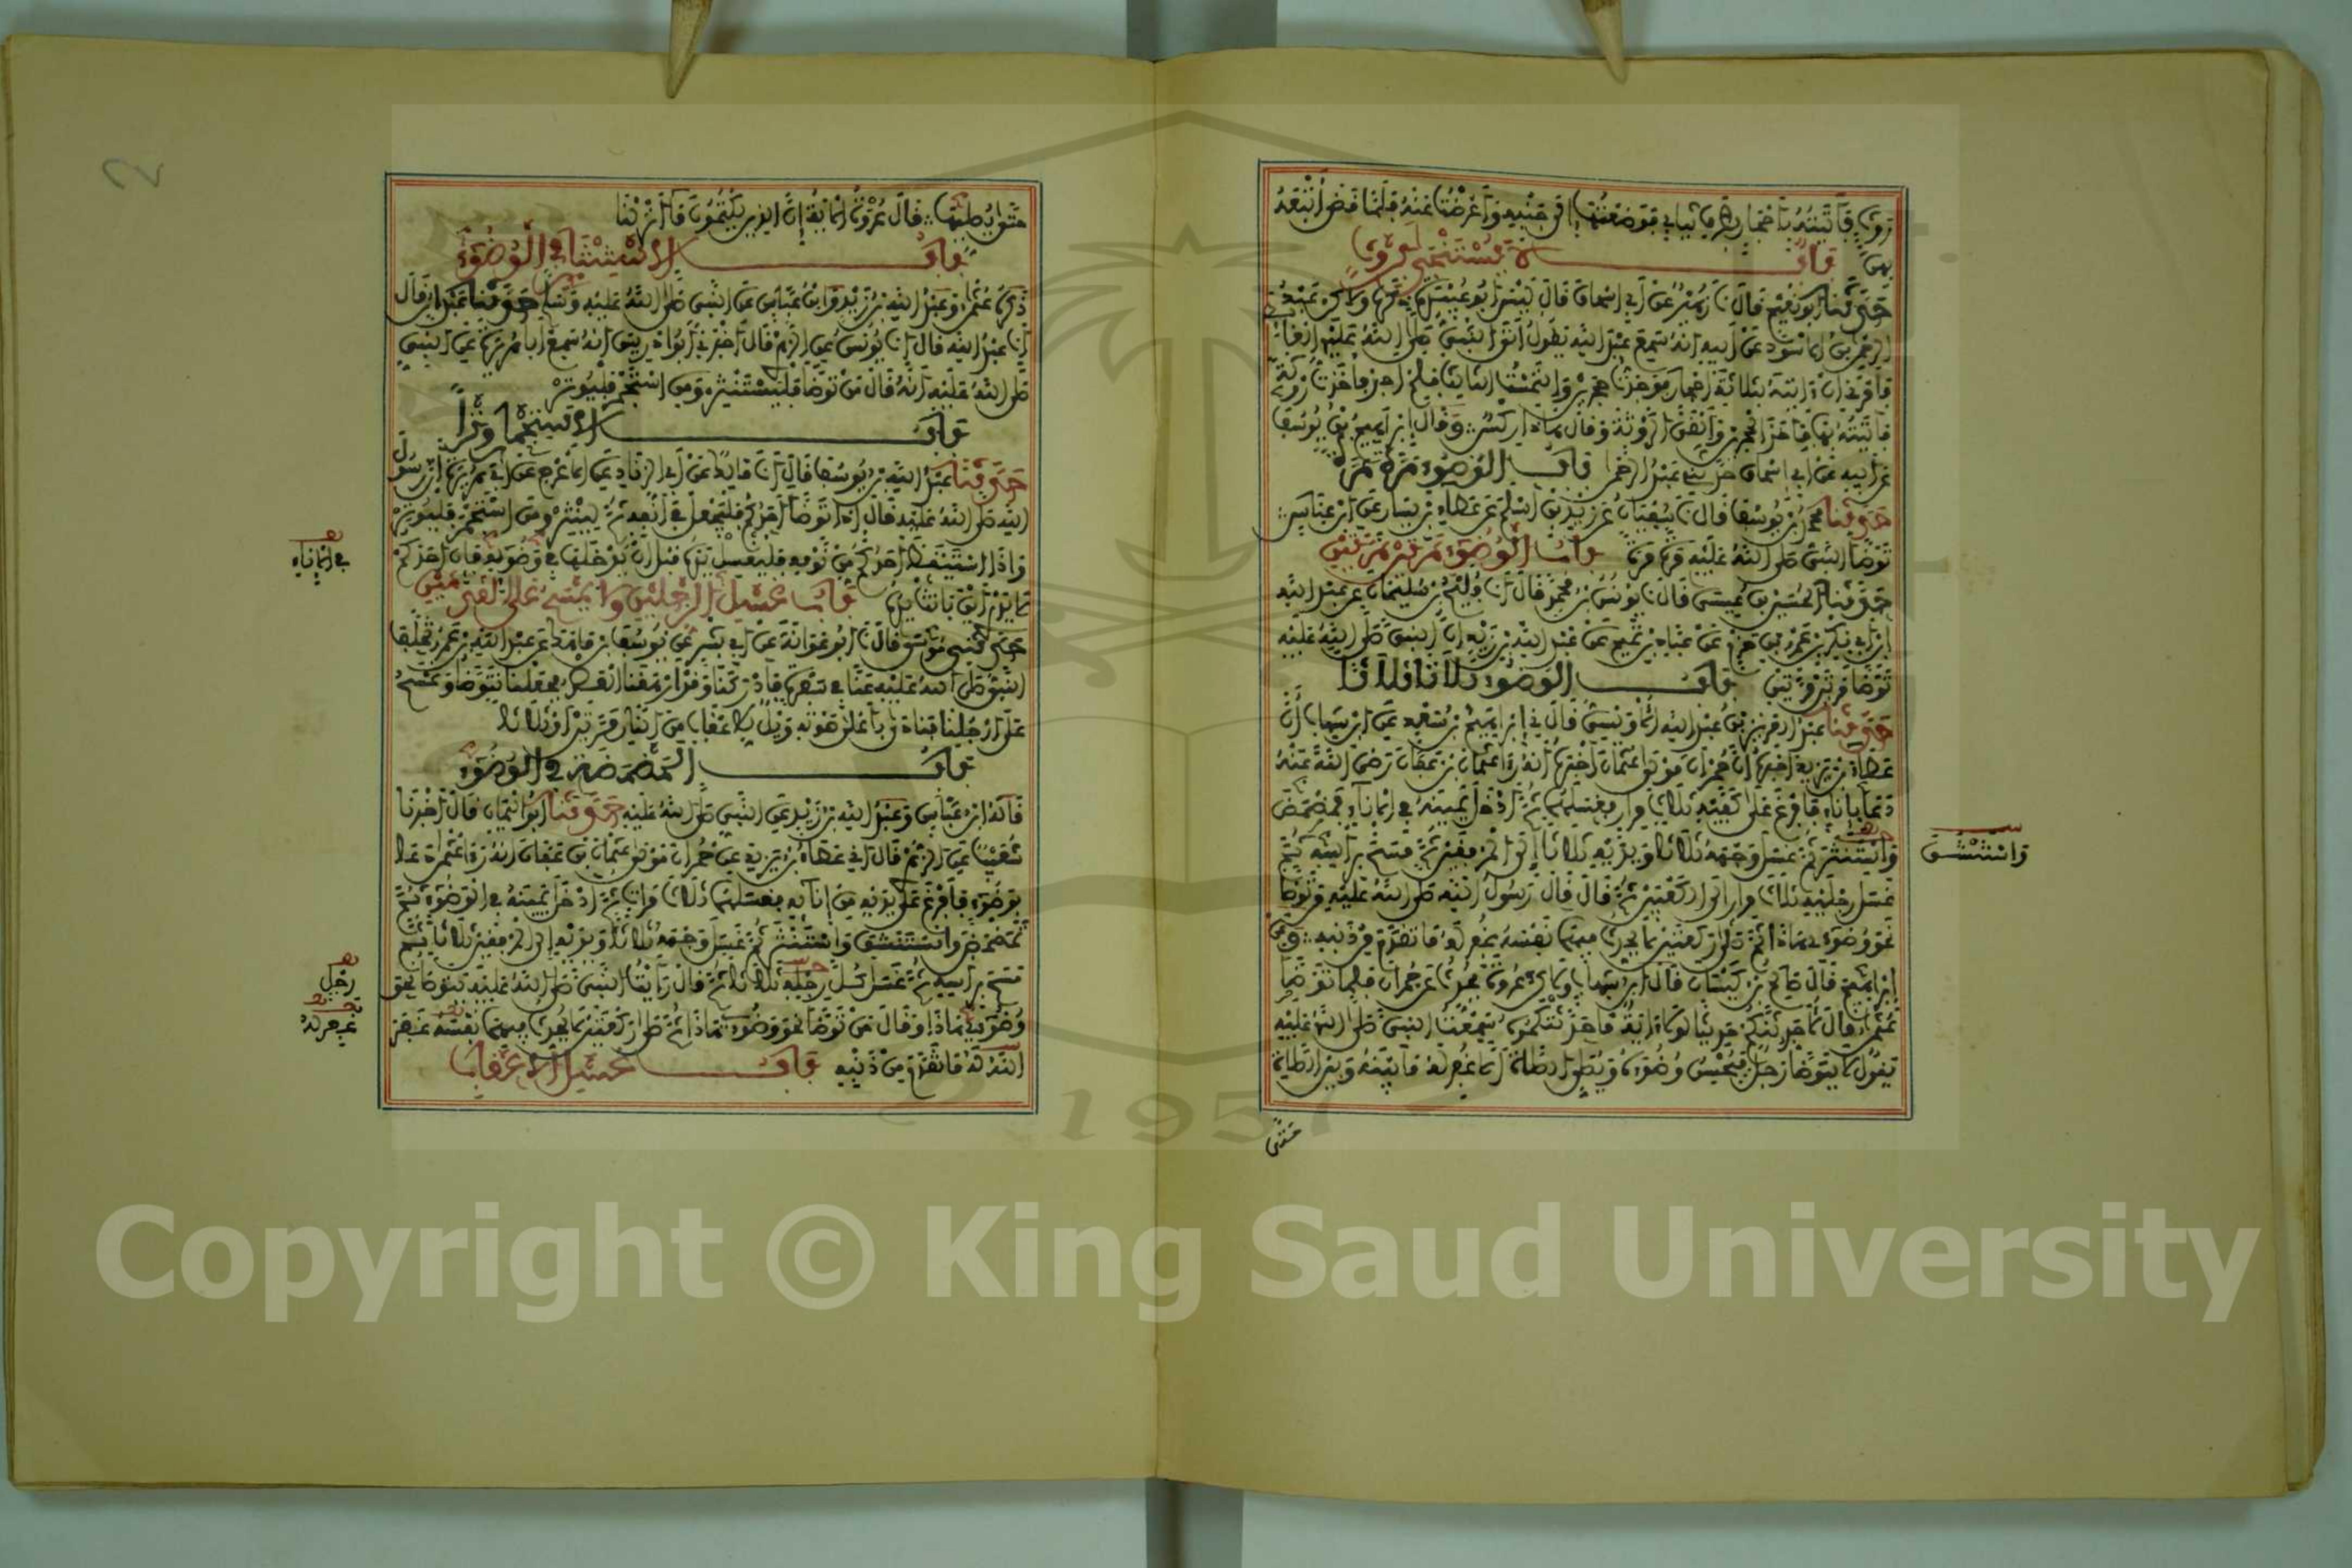 روث فأتيته بأحجار بطرف ثيابي فوضعتها إلى جنبه وأعرضت عنه فلما قضى أتبعه
بهن باب لا يستنجي بروث
حدثنا أبو نعيم قال نا زهير عن أبي إسحاق قال ليس أبو عبيدة ذكره ولكن عبد
الرحمن بن الأسود عن أبيه أنه سمع عبد الله يقول أتى النبي صلى الله عليه الغائط
فأمرني أن آتيه بثلاثة أحجار فوجدت حجرين والتمست الثالث فلم أجد فأخذت روثة
فأتيته بها فأخذ الحجرين وألقى الروثة وقال هذا ركس وقال إبراهيم بن يوسف
عن أبيه عن أبي إسحاق حدثني عبد الرحمن باب الوضوء مرة مرة
حدثنا محمد بن يوسف قال نا سفيان عن زيد بن أسلم عن عطاء بن يسار عن ابن عباس
توضأ النبي صلى الله عليه مرة مرة باب الوضوء مرتين مرتين
حدثنا الحسين بن عيسى قال نا يونس بن محمد قال أنا فليح بن سليمان عن عبد الله
ابن أبي بكر بن عمرو بن حزم عن عباد بن تميم عن عبد الله بن زيد أن النبي صلى الله عليه
توضأ مرتين مرتين باب الوضوء ثلاثا ثلاثا
حدثنا عبد العزيز بن عبد الله الأويسي قال ني إبراهيم بن سعد عن ابن شهاب أن
عطاء بن يزيد أخبره أن حمران مولى عثمان أخبره أنه رأى عثمان بن عفان رضي الله عنه
دعا بإناء فأفرغ على كفيه ثلاث مرار فغسلهما ثم أدخل يمينه في الإناء فمضمض
واستنثر ثم غسل وجهه ثلاثا ويديه ثلاثا إلى المرفقين ثم مسح برأسه ثم
واستنشق
غسل رجليه ثلاث مرار إلى الكعبين ثم قال قال رسول الله صلى الله عليه من توضأ
نحو وضوئي هذا ثم صلى ركعتين لا يحدث فيهما نفسه غفر له ما تقدم من ذنبه وعن
إبراهيم قال صالح بن كيسان قال ابن شهاب ولكن عروة يحدث عن حمران فلما توضأ
عثمان قال لأحدثنكم حديثا لولا آية ما حدثتكموه سمعت النبي صلى الله عليه
يقول لا يتوضأ رجل فيحسن وضوءه ويصلي الصلاة إلا غفر له ما بينه وبين الصلاة
حتى
حتى يصليها قال عروة الآية إن الذين يكتمون ما أنزلنا
باب الاستنثار في الوضوء
ذكره عثمان وعبد الله بن زيد وابن عباس عن النبي صلى الله عليه وسلم حدثنا عبدان قال
أنا عبد الله قال أنا يونس عن الزهري قال أخبرني أبو إدريس أنه سمع أبا هريرة عن النبي
صلى الله عليه أنه قال من توضأ فليستنثر ومن استجمر فليوتر
باب الاستجمار وترا
حدثنا عبد الله بن يوسف قال أنا مالك عن أبي الزناد عن الأعرج عن أبي هريرة أن رسول
الله صلى الله عليه قال إذا توضأ أحدكم فليجعل في أنفه ثم لينثر ومن استجمر فليوتر
وإذا استيقظ أحدكم من نومه فليغسل يده قبل أن يدخلها في وضوئه فإن أحدكم
في الإناء
لا يدري أين باتت يده باب غسل الرجلين ولا يمسح على القدمين
حدثني موسى قال نا أبو عوانة عن أبي بشر عن يوسف بن ماهك عن عبد الله بن عمرو تخلف
النبي صلى الله عليه عنا في سفرة فأدركنا وقد أرهقنا العصر فجعلنا نتوضأ ونمسح
على أرجلنا فنادى بأعلى صوته ويل للأعقاب من النار مرتين أو ثلاثا
باب المضمضة في الوضوء
قاله ابن عباس وعبد الله بن زيد عن النبي صلى الله عليه حدثنا أبو اليمان قال أخبرنا
شعيب عن الزهري قال أني عطاء بن يزيد عن حمران مولى عثمان بن عفان أنه رأى عثمان دعا
بوضوء فأفرغ على يديه من إنائه فغسلهما ثلاث مرات ثم أدخل يمينه في الوضوء ثم
تمضمض واستنشق واستنثر ثم غسل وجهه ثلاثا ويديه إلى المرفقين ثلاثا ثم
مسح برأسه ثم غسل كل رجله ثلاثا ثم قال رأيت النبي صلى الله عليه يتوضأ نحو
رجل
وضوئي هذا وقال من توضأ نحو وضوئي هذا ثم صلى ركعتين لا يحدث فيهما نفسه غفر
غفر له
الله له ما تقدم من ذنبه باب غسل الأعقاب
Copyright © King Saud University
1957